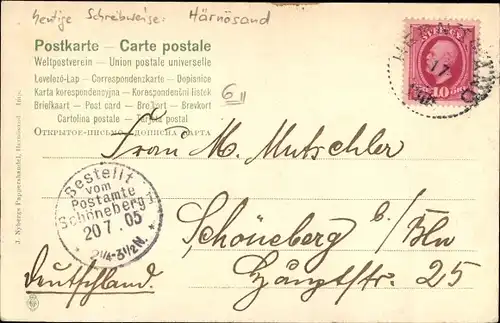 heutige Schreibweise: Härnösand
Postkarte – Carte postale
Weltpostverein – Union postale universelle
Levelező-Lap – Correspondenzkarte – Dopisnice
Karta korespondencyjna – Korespondenční lístek
Briefkaart – Post card – Brefkort – Brevkort
Cartolina postale – Tarjeta postal
Открытое-письмо
карта
6
SVERIGE
10 ÖRE
17
Bestellt
vom
Postamte
Schöneberg 1
20 7. 05
* 2¼-3½N. *
Frau M. Mutschler
Schöneberg b/Bln
Hauptstr. 25
Deutschland.
J. Nybergs Pappershandel, Hernösand Imp.